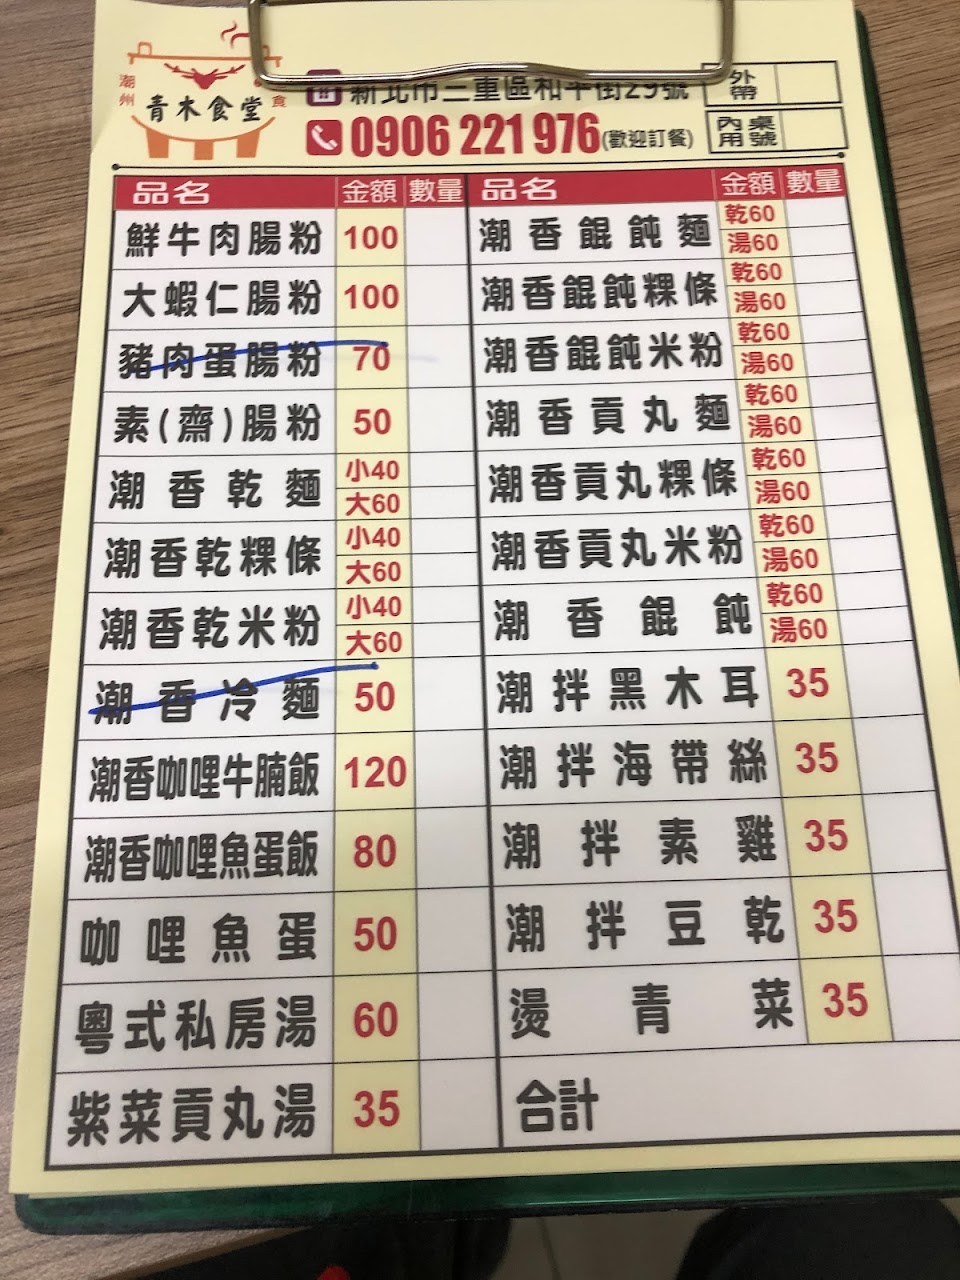 潮州
青木食堂
食
新北市三重區和平街29號
0906 221 976(歡迎訂餐)
外帶
內用 桌號
品名 金額 數量
鮮牛肉腸粉 100
大蝦仁腸粉 100
豬肉蛋腸粉 70
素(齋)腸粉 50
潮香乾麵 小40 大60
潮香乾粿條 小40 大60
潮香乾米粉 小40 大60
潮香冷麵 50
潮香咖哩牛腩飯 120
潮香咖哩魚蛋飯 80
咖哩魚蛋 50
粵式私房湯 60
紫菜貢丸湯 35
品名 金額 數量
潮香餛飩麵 乾60 湯60
潮香餛飩粿條 乾60 湯60
潮香餛飩米粉 乾60 湯60
潮香貢丸麵 乾60 湯60
潮香貢丸粿條 乾60 湯60
潮香貢丸米粉 乾60 湯60
潮香餛飩 乾60 湯60
潮拌黑木耳 35
潮拌海帶絲 35
潮拌素雞 35
潮拌豆乾 35
燙青菜 35
合計